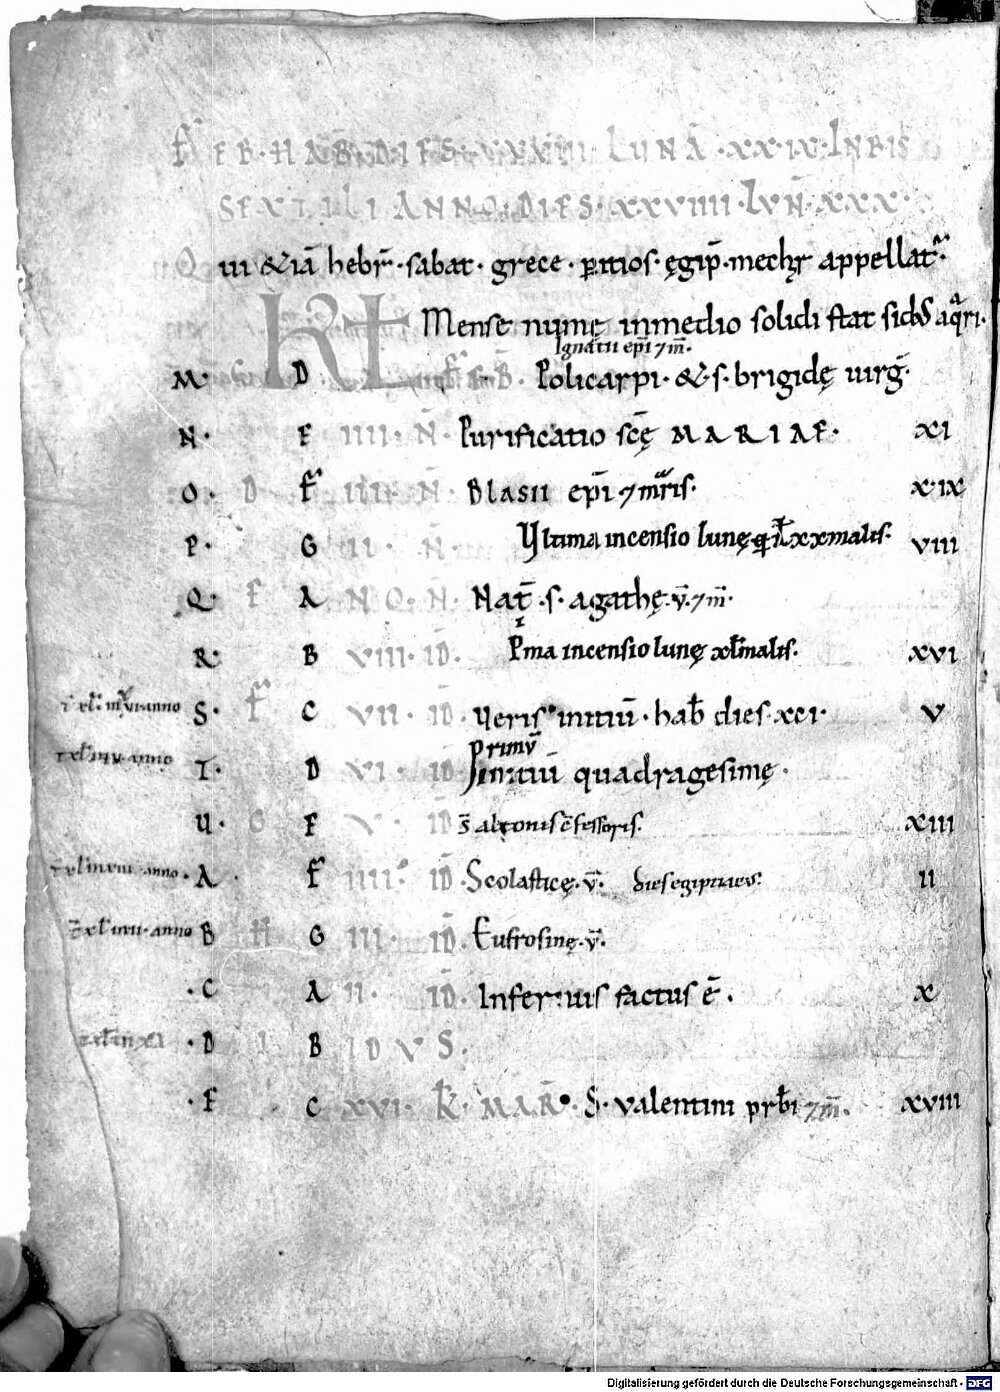 FEB· HAB̄· DIES· XXVIII· LUNA̅· XX·IX· IN BIS
SEXTILI ANNO· DIES· XXVIIII· LVN̄· XXX·
Qui &iā hebr̄· sabat· grece· ꝑitios· ęgip̄· mechyr appellat̄·
KL Mense numę in medio solidi stat sid᷒ aq̄ri·
Ignatii ep̄i ⁊ m̄·
M· D F· B̄· Policarpi· & s· brigidę uirḡ·
N· E IIII· N̄· Purificatio scę̄ MARIAE· XI
O· D F III· N̄· Blasii ep̄i ⁊ mr̄is· X·IX
P· G II· N̄ Vltima incensio lunę VIII
Q· F A NO· N̄· Nat̄· s· agathę· v̄· ⁊ m̄·
R· B VIII· ID̄· P̄ma incensio lunę XVI
anno S· F C VII· ID̄· Ueris initiū· hab̄ dies· xci· V
primū
anno T· D VI· ID̄ Initiū quadragesimę·
U· G E V· ID̄ S̄ altonis c̄fessoris· XIII
anno· A· F IIII· ID̄· Scolasticę· v̄· dies egiptiacus· II
anno B H G III· ID̄· Eufrosinę· v̄·
·C A II· ID̄· Infer:uis factus ē· X
·D I B IDVS·
·E C XVI· K̄· MAR̄· S· valentini prb̄i ⁊ m̄· XVIII
Digitalisierung gefördert durch die Deutsche Forschungsgemeinschaft - DFG